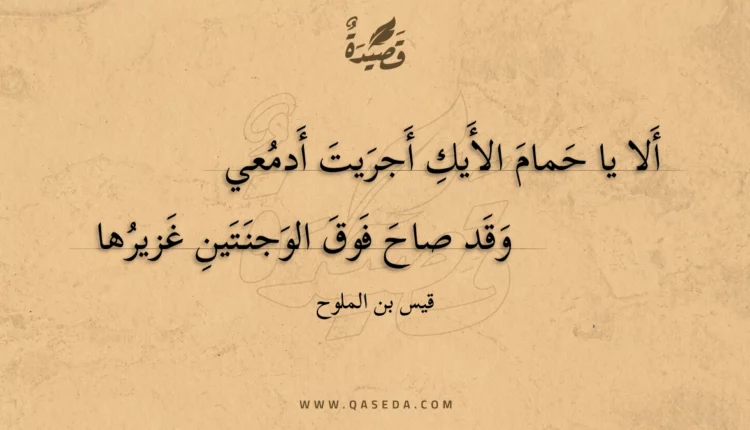 قَصِيْدَةٌ
أَلا يا حَمامَ الأَيكِ أَجرَيتَ أَدمُعي
وَقَد صاحَ فَوقَ الوَجنَتَينِ غَزيرُها
قيس بن الملوح
WWW.QASEDA.COM